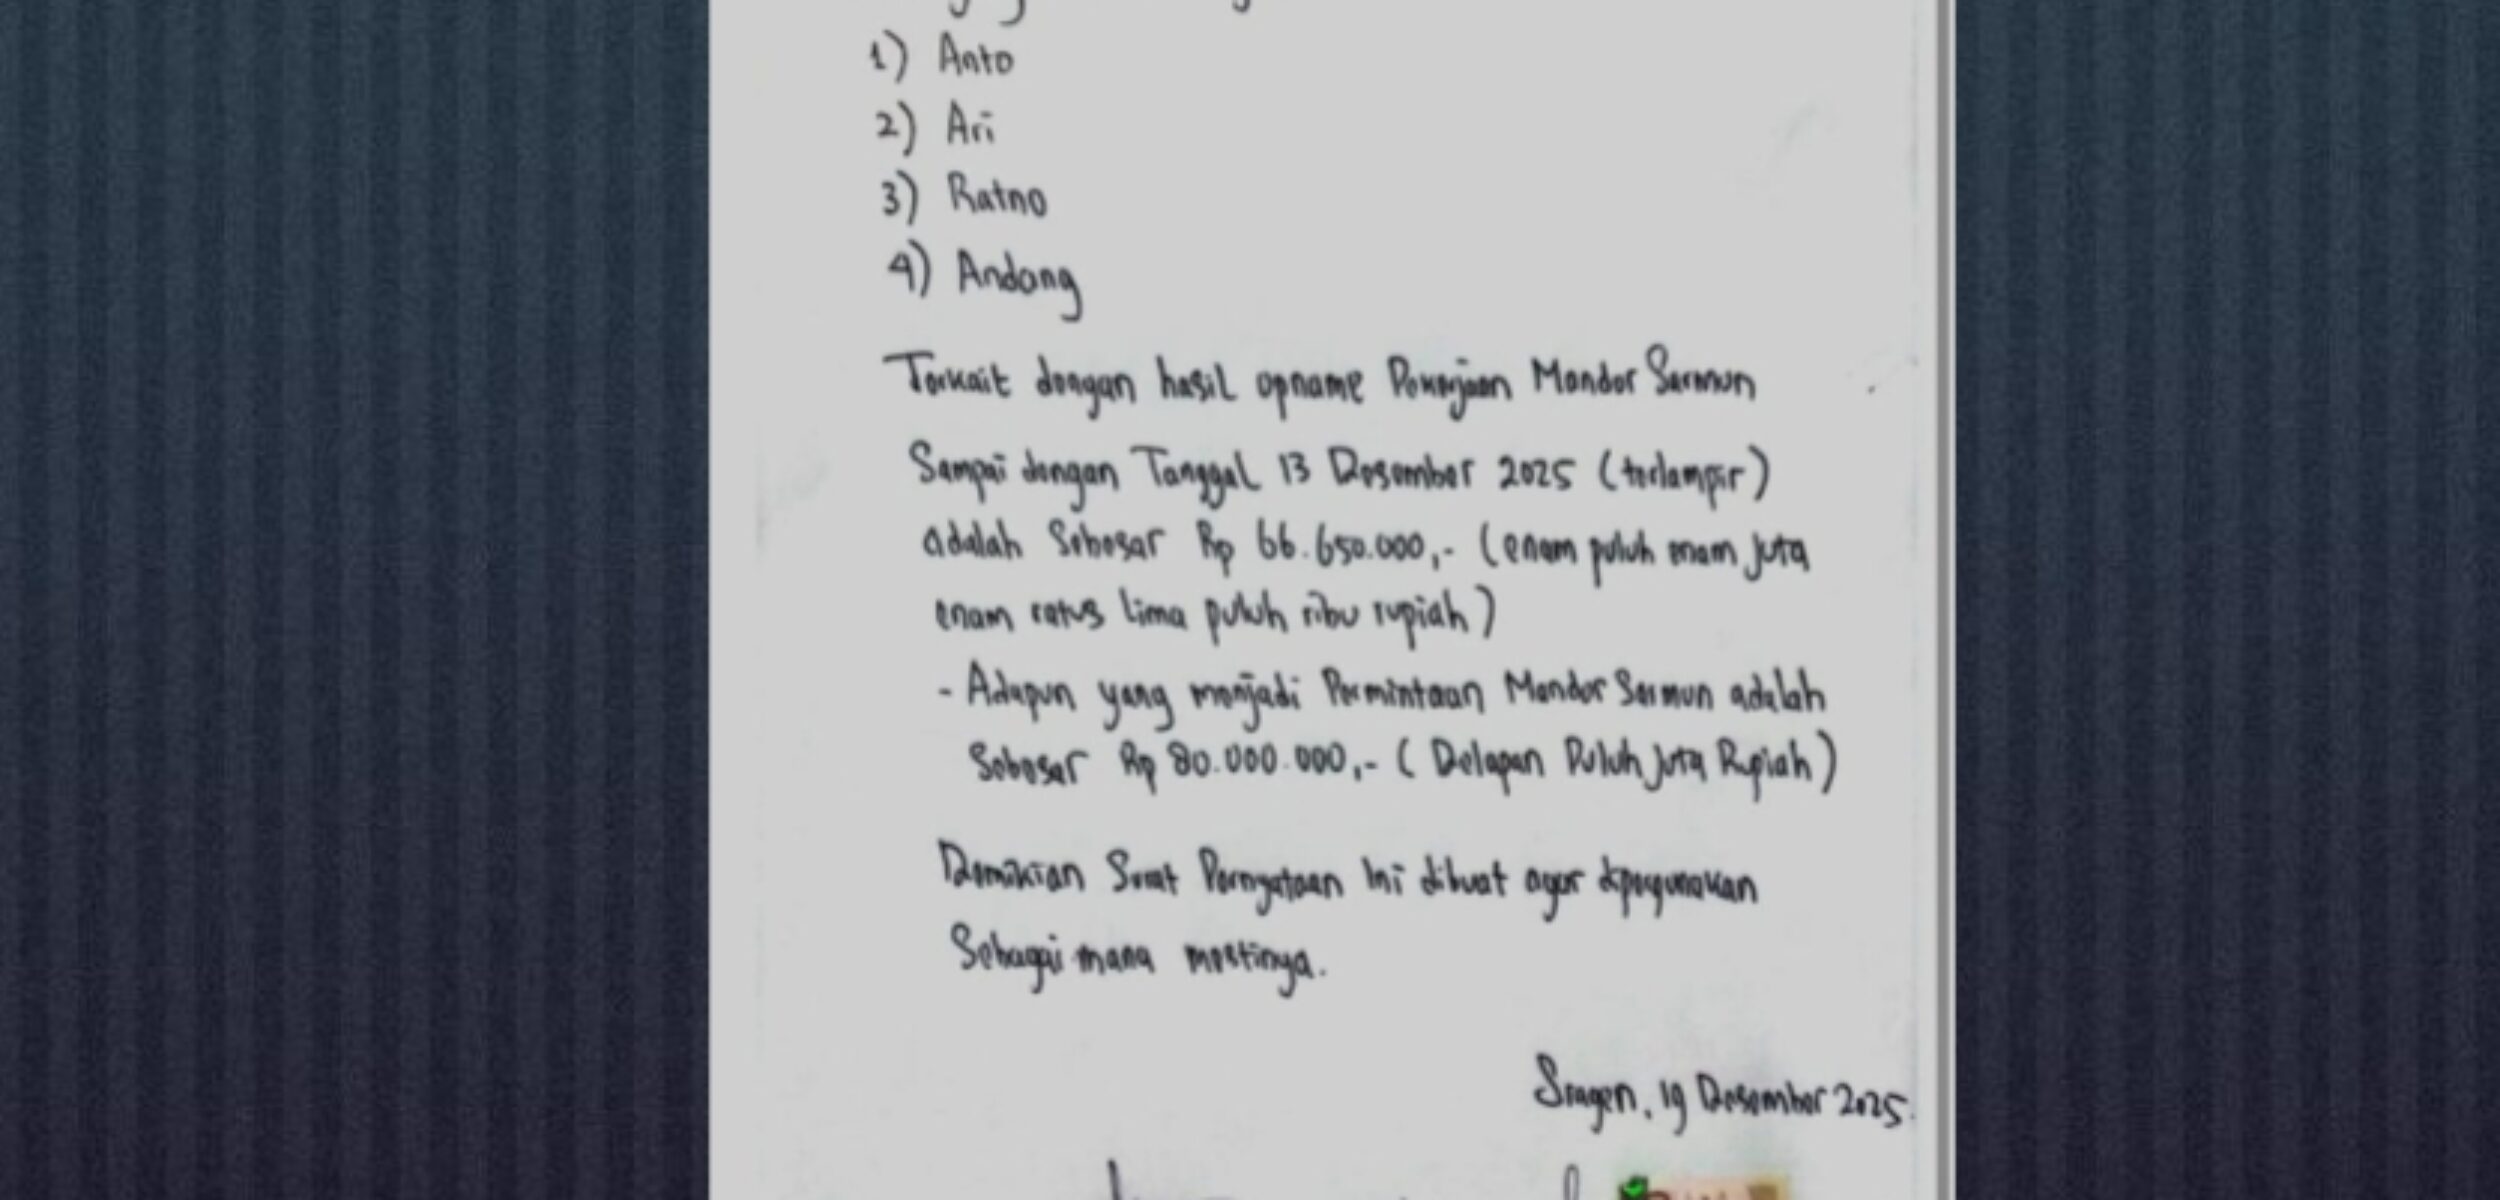 1) Anto
2) Ari
3) Ratno
4) Andong
Terkait dengan hasil opname Pekerjaan Mandor Sarmun
Sampai dengan Tanggal 13 Desember 2025 (terlampir)
adalah Sebesar Rp 66.650.000,- (enam puluh enam juta
enam ratus lima puluh ribu rupiah)
- Adapun yang menjadi Permintaan Mandor Sarmun adalah
Sebesar Rp 80.000.000,- ( Delapan Puluh Juta Rupiah)
Demikian Surat Pernyataan Ini dibuat agar dipergunakan
Sebagai mana mestinya.
Sragen, 19 Desember 2025.